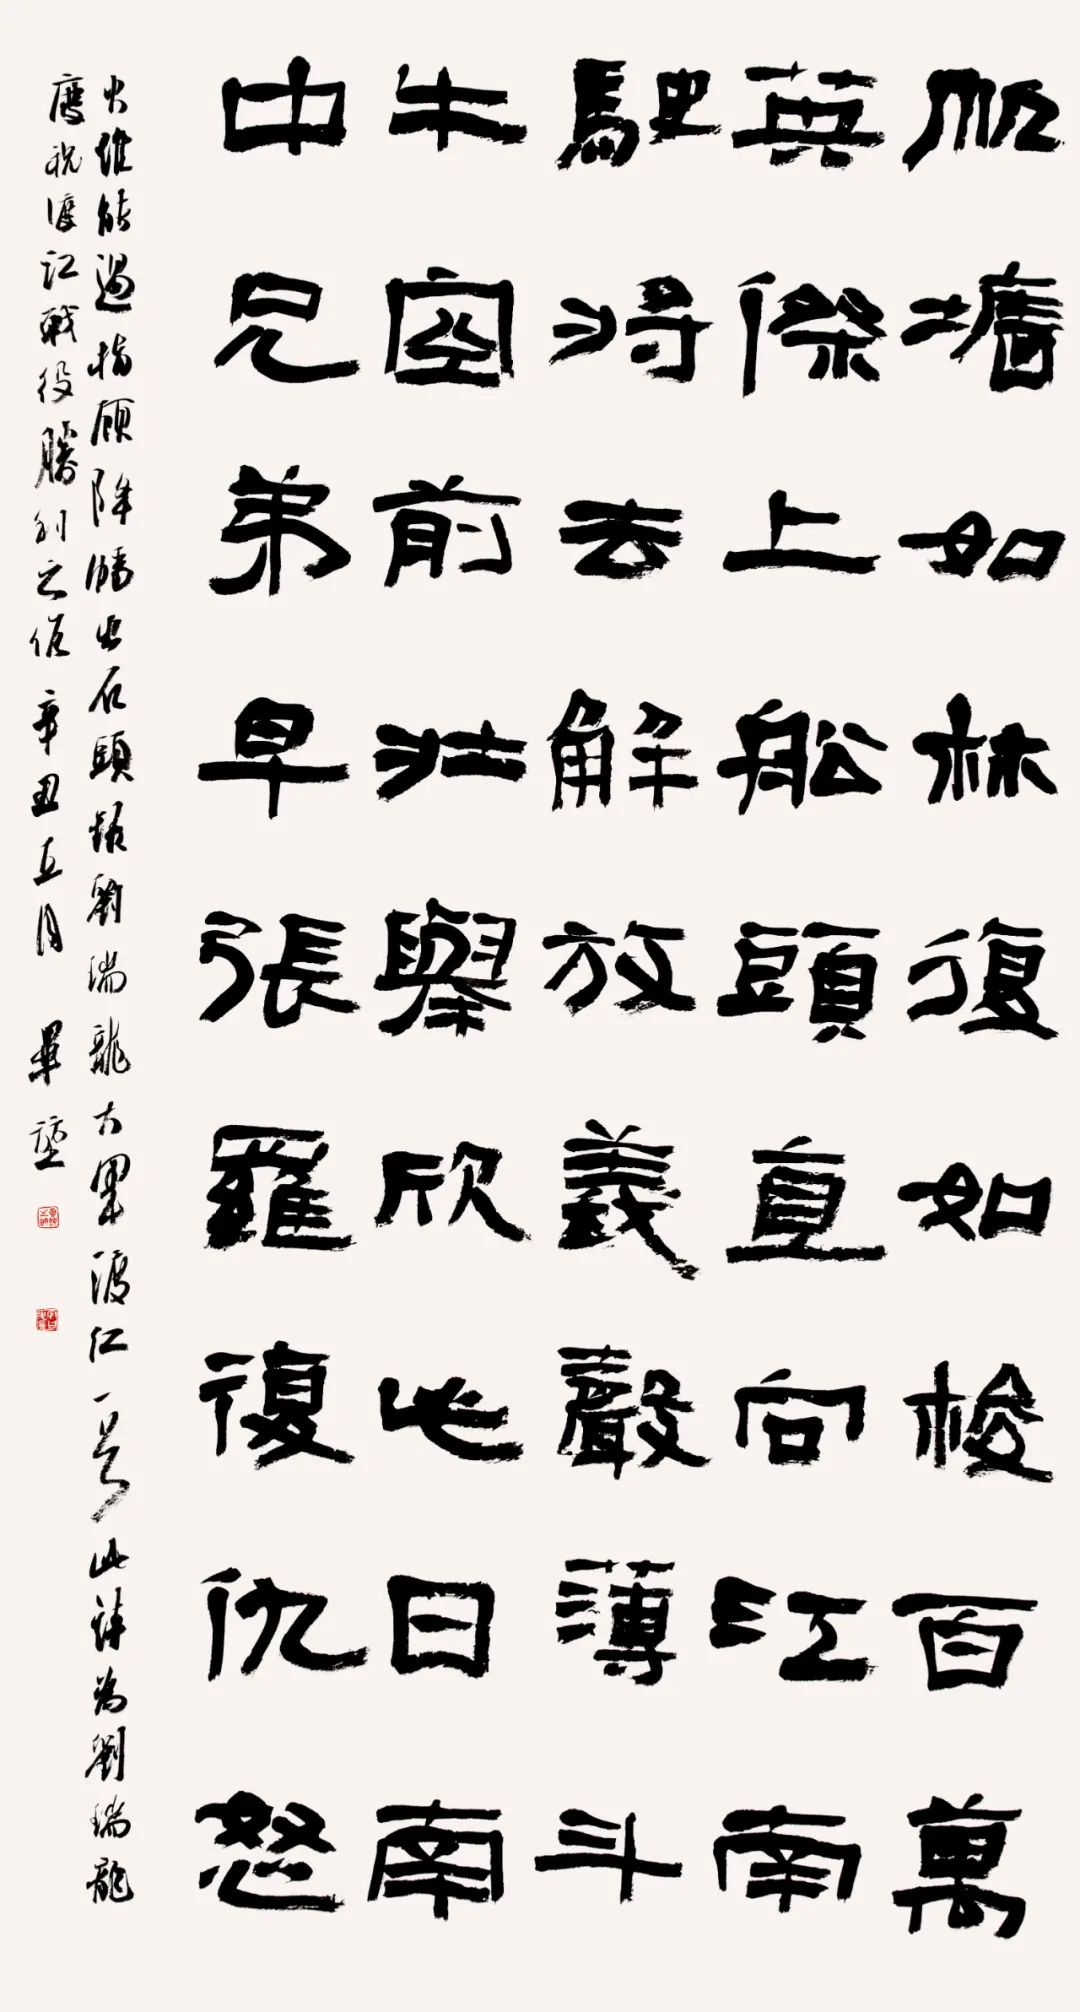 帆檣如林復如梭百萬
英傑上船頭直向江南
駛將去解放義聲薄斗
牛空前壯舉欣此日南
中兄弟早張羅復仇怒
火誰能遏指顧降幡出石頭録劉瑞龍大軍渡江一首此詩為劉瑞龍
慶祝渡江戰役勝利之作辛丑五月畢